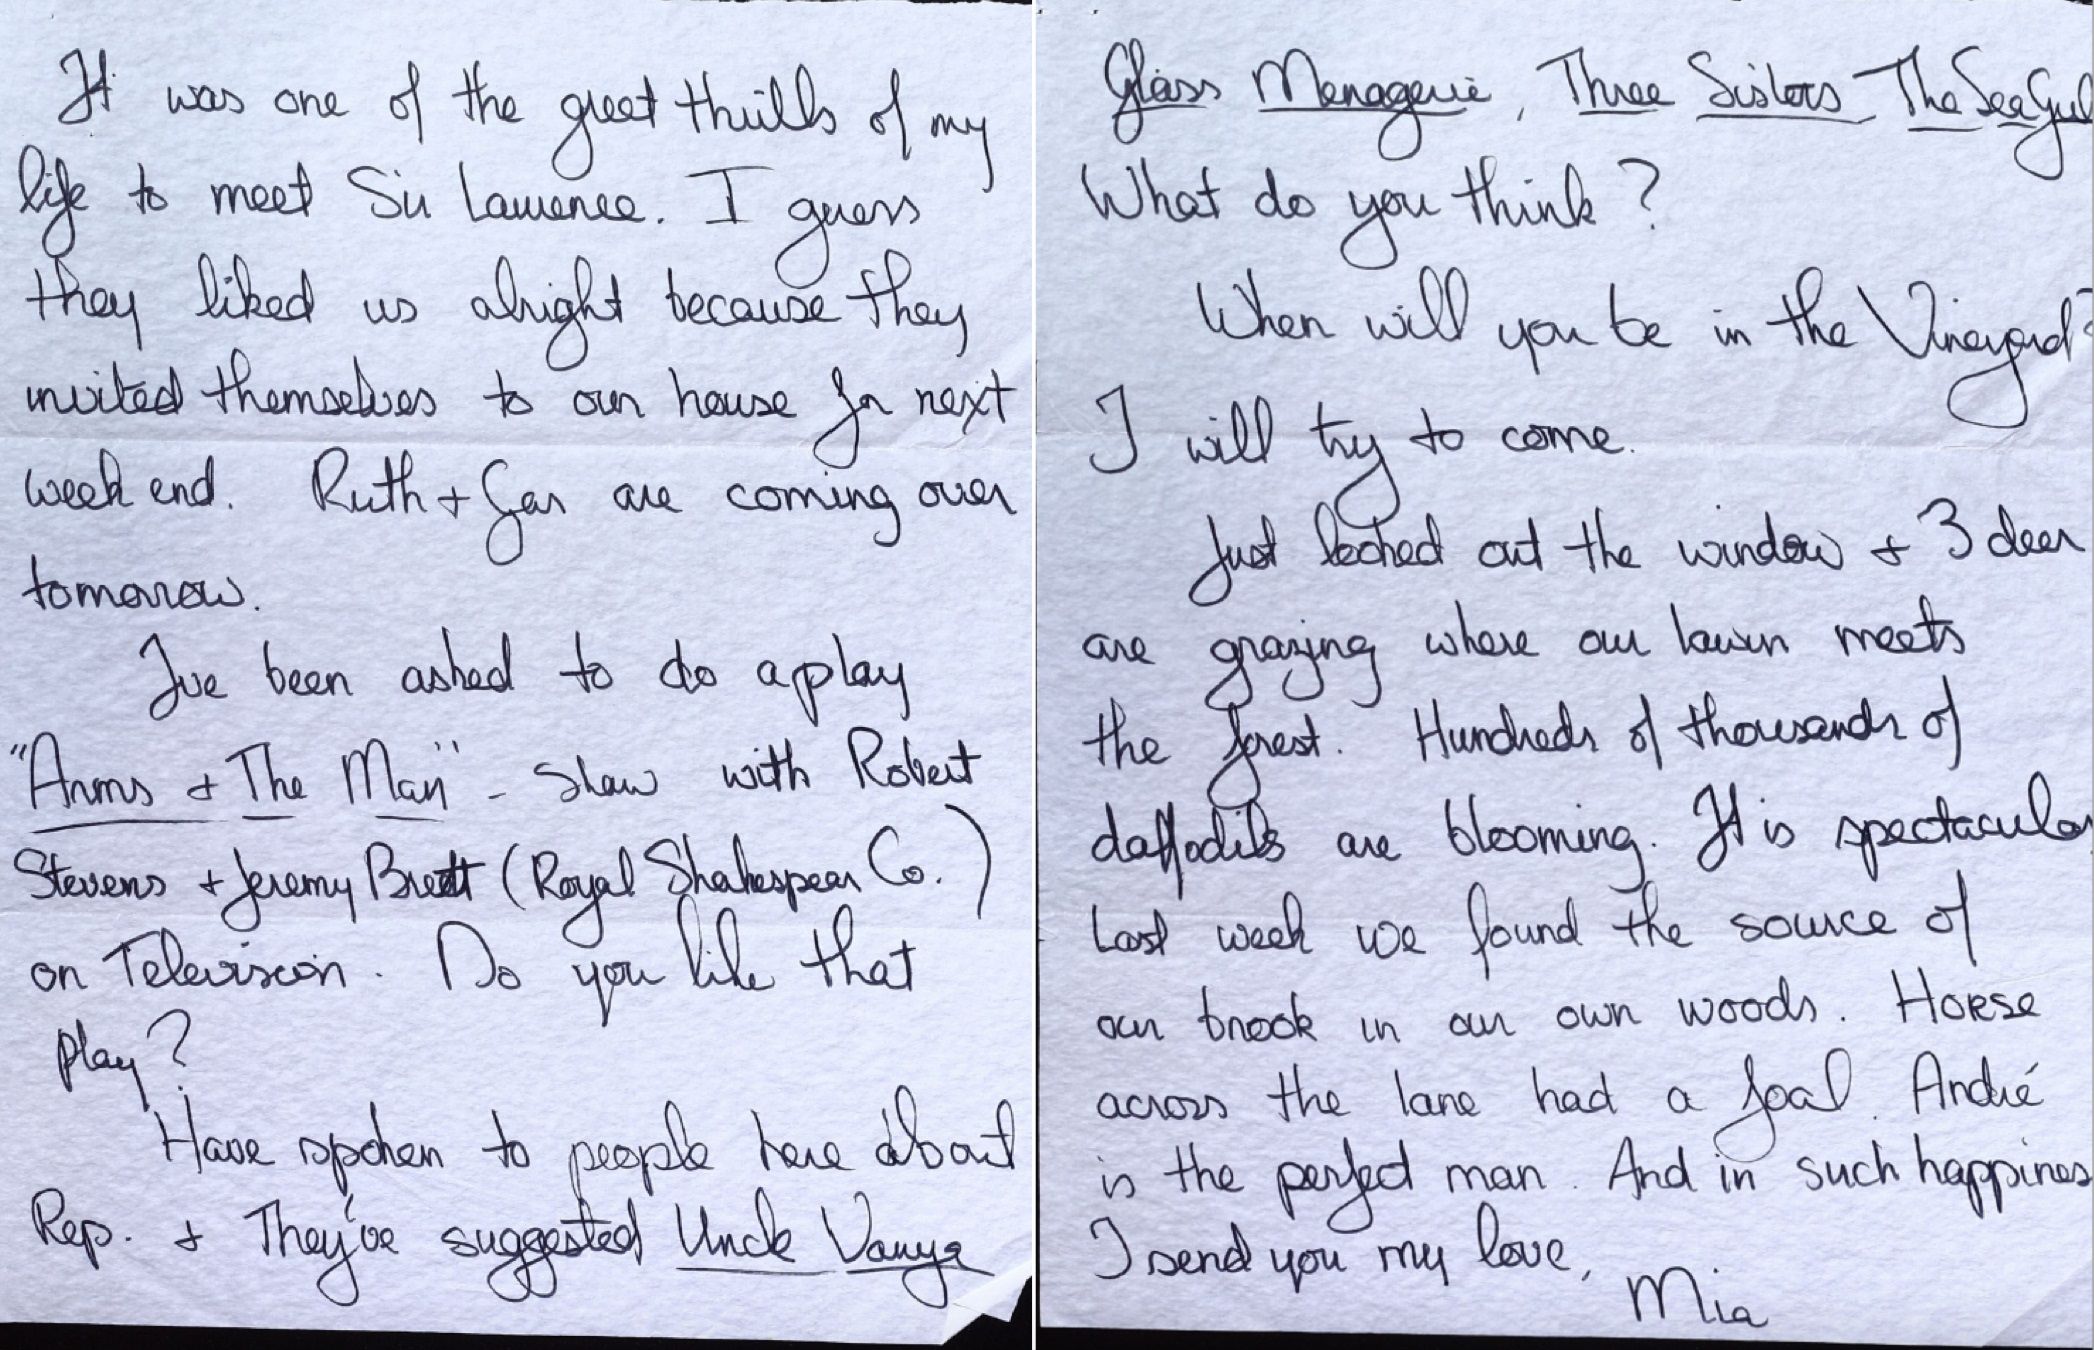 It was one of the great thrills of my
life to meet Sir Lawrence. I guess
they liked us alright because they
invited themselves to our house for next
week end. Ruth + Gar are coming over
tomorrow.
I've been asked to do a play
"Arms + The Man" - Shaw with Robert
Stevens + Jeremy Brett (Royal Shakespear Co.)
on Television. Do you like that
play?
Have spoken to people here about
Rep. + They've suggested Uncle Vanya
Glass Menagerie, Three Sisters The Sea Gull
What do you think?
When will you be in the Vineyard?
I will try to come.
Just looked out the window + 3 deer
are grazing where our lawn meets
the forest. Hundreds of thousands of
daffodils are blooming. It is spectacular
Last week we found the source of
our brook in our own woods. Horse
across the lane had a foal. André
is the perfect man. And in such happiness
I send you my love,
Mia